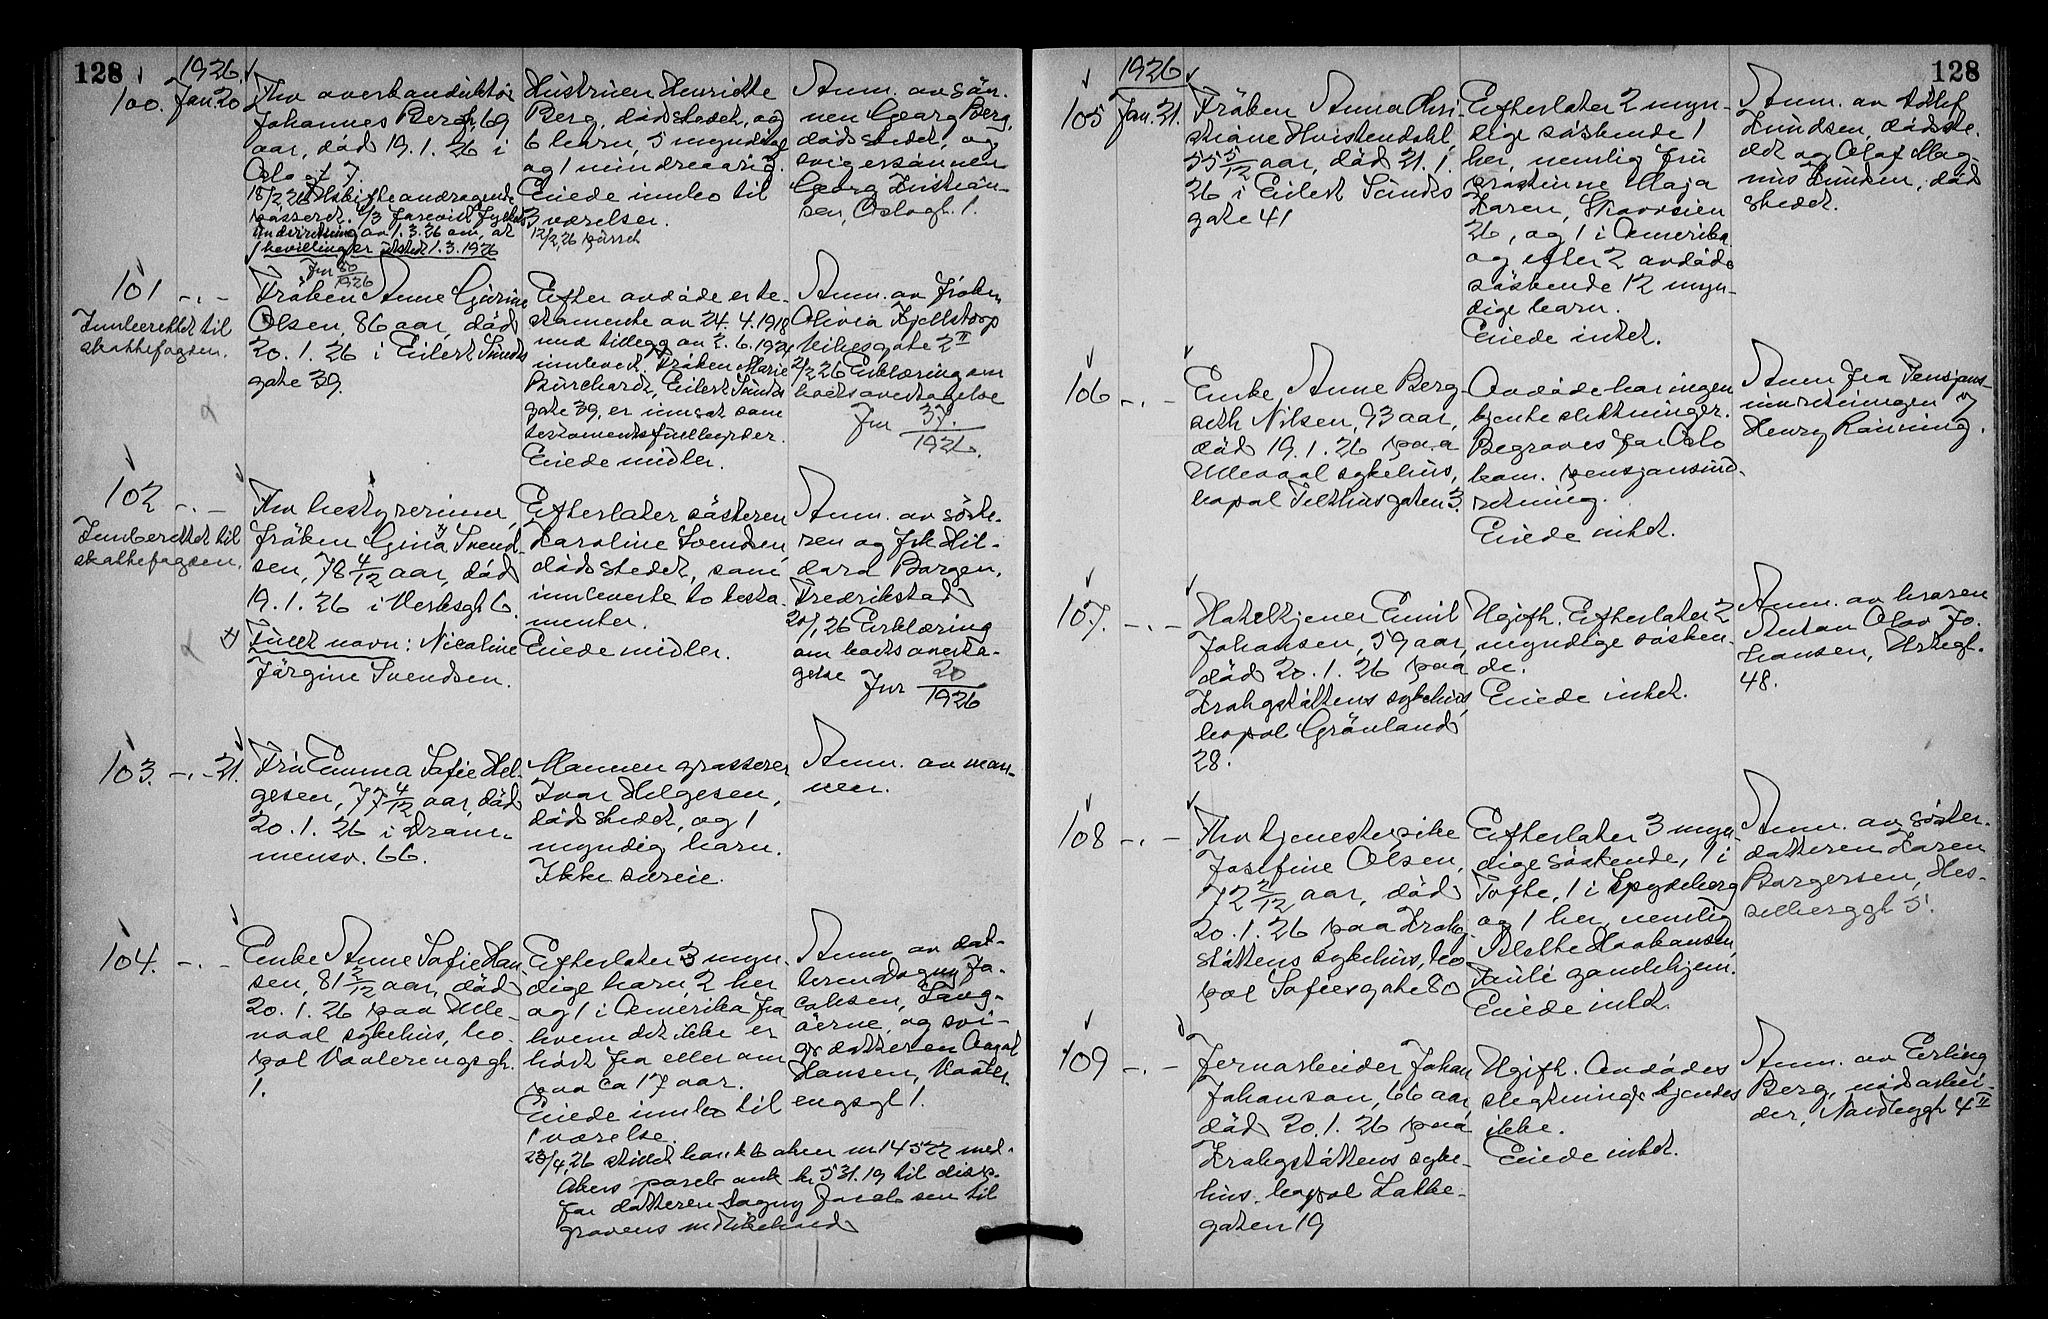 128
1926.
100. Jan. 20
Fhv overkonduktör
Johannes Berg, 69
aar, död 19. 1. 26 i
Oslo gt 7.
18/2, 26 Uskifteandragende
passeret. 1/3 Forevist fylkets
underretning av 1.3.26 om, at
bevilling er utstedt 1.3.1926
Jnr 80/1926
Hustruen Henriette
Berg, dödsstedet, og
6 barn, 5 myndige
og 1 mindreaarig.
Eiede innbo til
3 værelser.
12/2, 26 purret
Anm. av sön-
nen Georg Berg,
dödsstedet, og
svigersönnen
Georg Kristian-
sen, Oslogt. 1.
101 -.-
Innberettet til
skattefogden.
Fröken Anne Gurine
Olsen, 86 aar, död
20. 1. 26 i Eilert Sundts
gate 39.
Efter avdöde er te-
stamente av 24. 4. 1918
med tillegg av 2. 6. 1924
innlevert. Fröken Marie
Burchardt, Eilert Sundts
gate 39, er innsat som
testamentsfullbyrder.
Eiede midler.
Anm. av fröken
Olivia Kjellstorp
Vibesgate 2 II
2/2 26 Erklæring om
boets overtagelse
Jnr 37./1926.
102 -.-
Innberettet til
skattefogden.
Fhv bestyrerinne,
fröken Gina x) Svend-
sen, 78 4/12 aar, död
19. 1. 26 i Verksgt 6.
x) Fullt navn: Nicoline
Jörgine Svendsen.
Efterlater sösteren
Karoline Svendsen,
dödsstedet, som
innleverte to testa-
menter.
Eiede midler.
Anm. av söste-
ren og frk Hil-
dora Borgen,
Fredrikstad
20/1, 26 Erklæring
om boets overta-
gelse Jnr 20/1926
103. -.- 21.
Fru Emma Sofie Hel-
gesen, 77 4/12 aar, död
20. 1. 26 i Dram-
mensv. 66.
Mannen grosserer
Ivar Helgesen,
dödsstedet, og 1
myndig barn.
Ikke særeie.
Anm. av man-
nen.
104. -.-
Enke Anne Sofie Han-
sen, 81 2/12 aar, död
20. 1. 26 paa Ulle-
vaal sykehus, bo-
pæl Vaalerengsgt.
1.
Efterlater 3 myn-
dige barn 2 her
og 1 i Amerika fra
hvem det ikke er
hört fra eller om
paa ca 17 aar.
Eiede innbo til
1 værelse.
23/4, 26 stillet bank b aker nr 14522 med-
Akers spareb ank kr 531.19 til disp.
for datteren Dagny Jacobsen til
gravens vedlikehold
Anm. av dat-
teren Dagny Ja-
cobsen, Lang-
öerne, og svi-
gerdatteren Aagot
Hansen, Vaaler-
engsgt 1.
1926
128
105 Jan. 21.
Fröken Anna Chri-
stiane Hvistendahl,
55 5/12 aar, död 21. 1.
26 i Eilert Sundts
gate 41
Efterlater 2 myn-
dige söskende 1
her, nemlig fru
prostinne Maja
Koren, Stavosien
26, og 1 i Amerika
og efter 2 avdöde
söskende 12 myn-
dige barn.
Eiede intet.
Anm. av Detlef
Knudsen, dödste-
det og Olaf Mag-
nus Knudsen, död
stedet.
106 -.-
Enke Anne Berg-
seth Nilsen, 93 aar,
död 19. 1. 26 paa
Ullevaal sykehus,
bopæl Pilthusgaten 3.
Avdöde har ingen
kjente slektninger.
Begraves for Oslo
kom. pensjonsind-
retning.
Eiede intet.
Anm fra Pensjons-
innretningen v/
Henry Rönning.
107. -.-
Hotelltjener Emil
Johansen, 59 aar,
död 20. 1. 26 paa
Krohgstöttens sykehus,
bopæl Grönland
28.
Ugift. Efterlater 2
myndige sösken-
de.
Eiede intet.
Anm. av broren
Anton Olav Jo-
hansen, Urtegt.
48.
108 -.-
Fhv tjenestepike
Josefine Olsen,
72 2/12 aar, död
20. 1. 26 paa Krohg-
stöttens sykehus, bo-
pæl Sofiesgate 80
Efterlater 3 myn-
dige söskende, 1 i
Tofte, 1 i Spydeberg
og 1 her, nemlig
Blethe Haakonsen,
Pauli gamlehjem.
Eiede intet.
Anm. av söster-
datteren Karen
Borgersen, Hes-
selberggt 5.
109 -.-
Jernarbeider Johan
Johanson, 66 aar,
död 20. 1. 26 paa
Krohgstöttens syke-
hus, bopæl Lakke-
gaten 19
Ugift. Avdödes
slegtninge kjendes
ikke.
Eiede intet.
Anm. av Erling
Berg, nödarbei-
der, Nordbygt 4 II